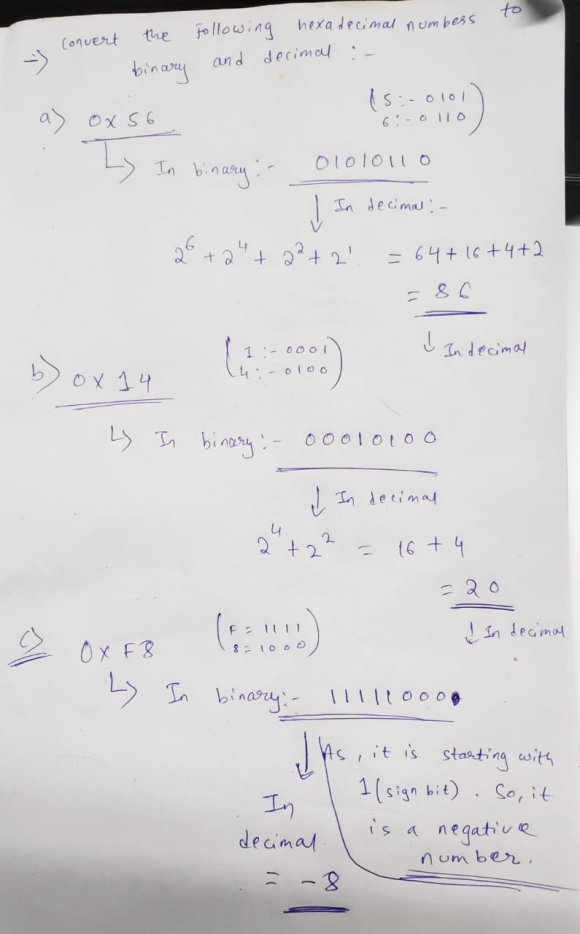 => Convert the following hexadecimal numbess to
binary and decimal :-
a) 0x56
(5:- 0101
6:- 0110)
↳ In binary:- 01010110
↓ In decimal:-
2^6 + 2^4 + 2^2 + 2^1 = 64+16+4+2
= 86
↓ In decimal
b) 0x14
(1:- 0001
4:- 0100)
↳ In binary:- 00010100
↓ In decimal
2^4 + 2^2 = 16 + 4
= 20
↓ In decimal
c) 0xF8
(F = 1111
8 = 1000)
↳ In binary:- 11111000
↓ As, it is starting with
1 (sign bit). So, it
is a negative
number.
In
decimal
= -8